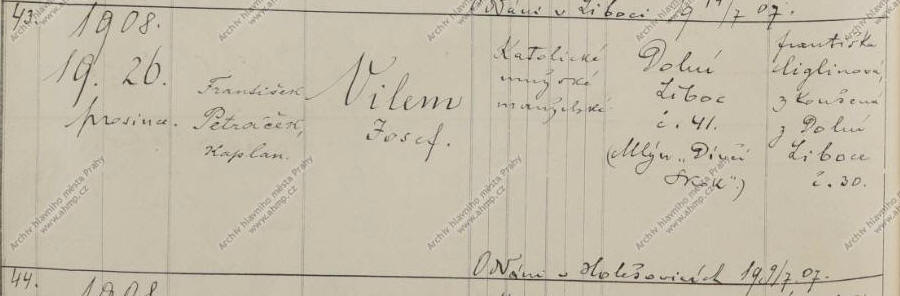 43.
Oddáni v Liboci 19 14/7 07.
1908.
19. 26.
prosince.
František
Petráček,
Kaplan.
Vilem
Josef.
Katolické
mužské
manželské
Dolní
Liboc
č. 41.
(Mlýn „Dívčí
Skok".)
františka
ziglinová,
zkoušená
z Dolní
Liboce
č. 30.
Oddáni v Holešovicích 19 9/7 07.
44.
1908
Archiv hlavního města Prahy
www.ahmp.cz